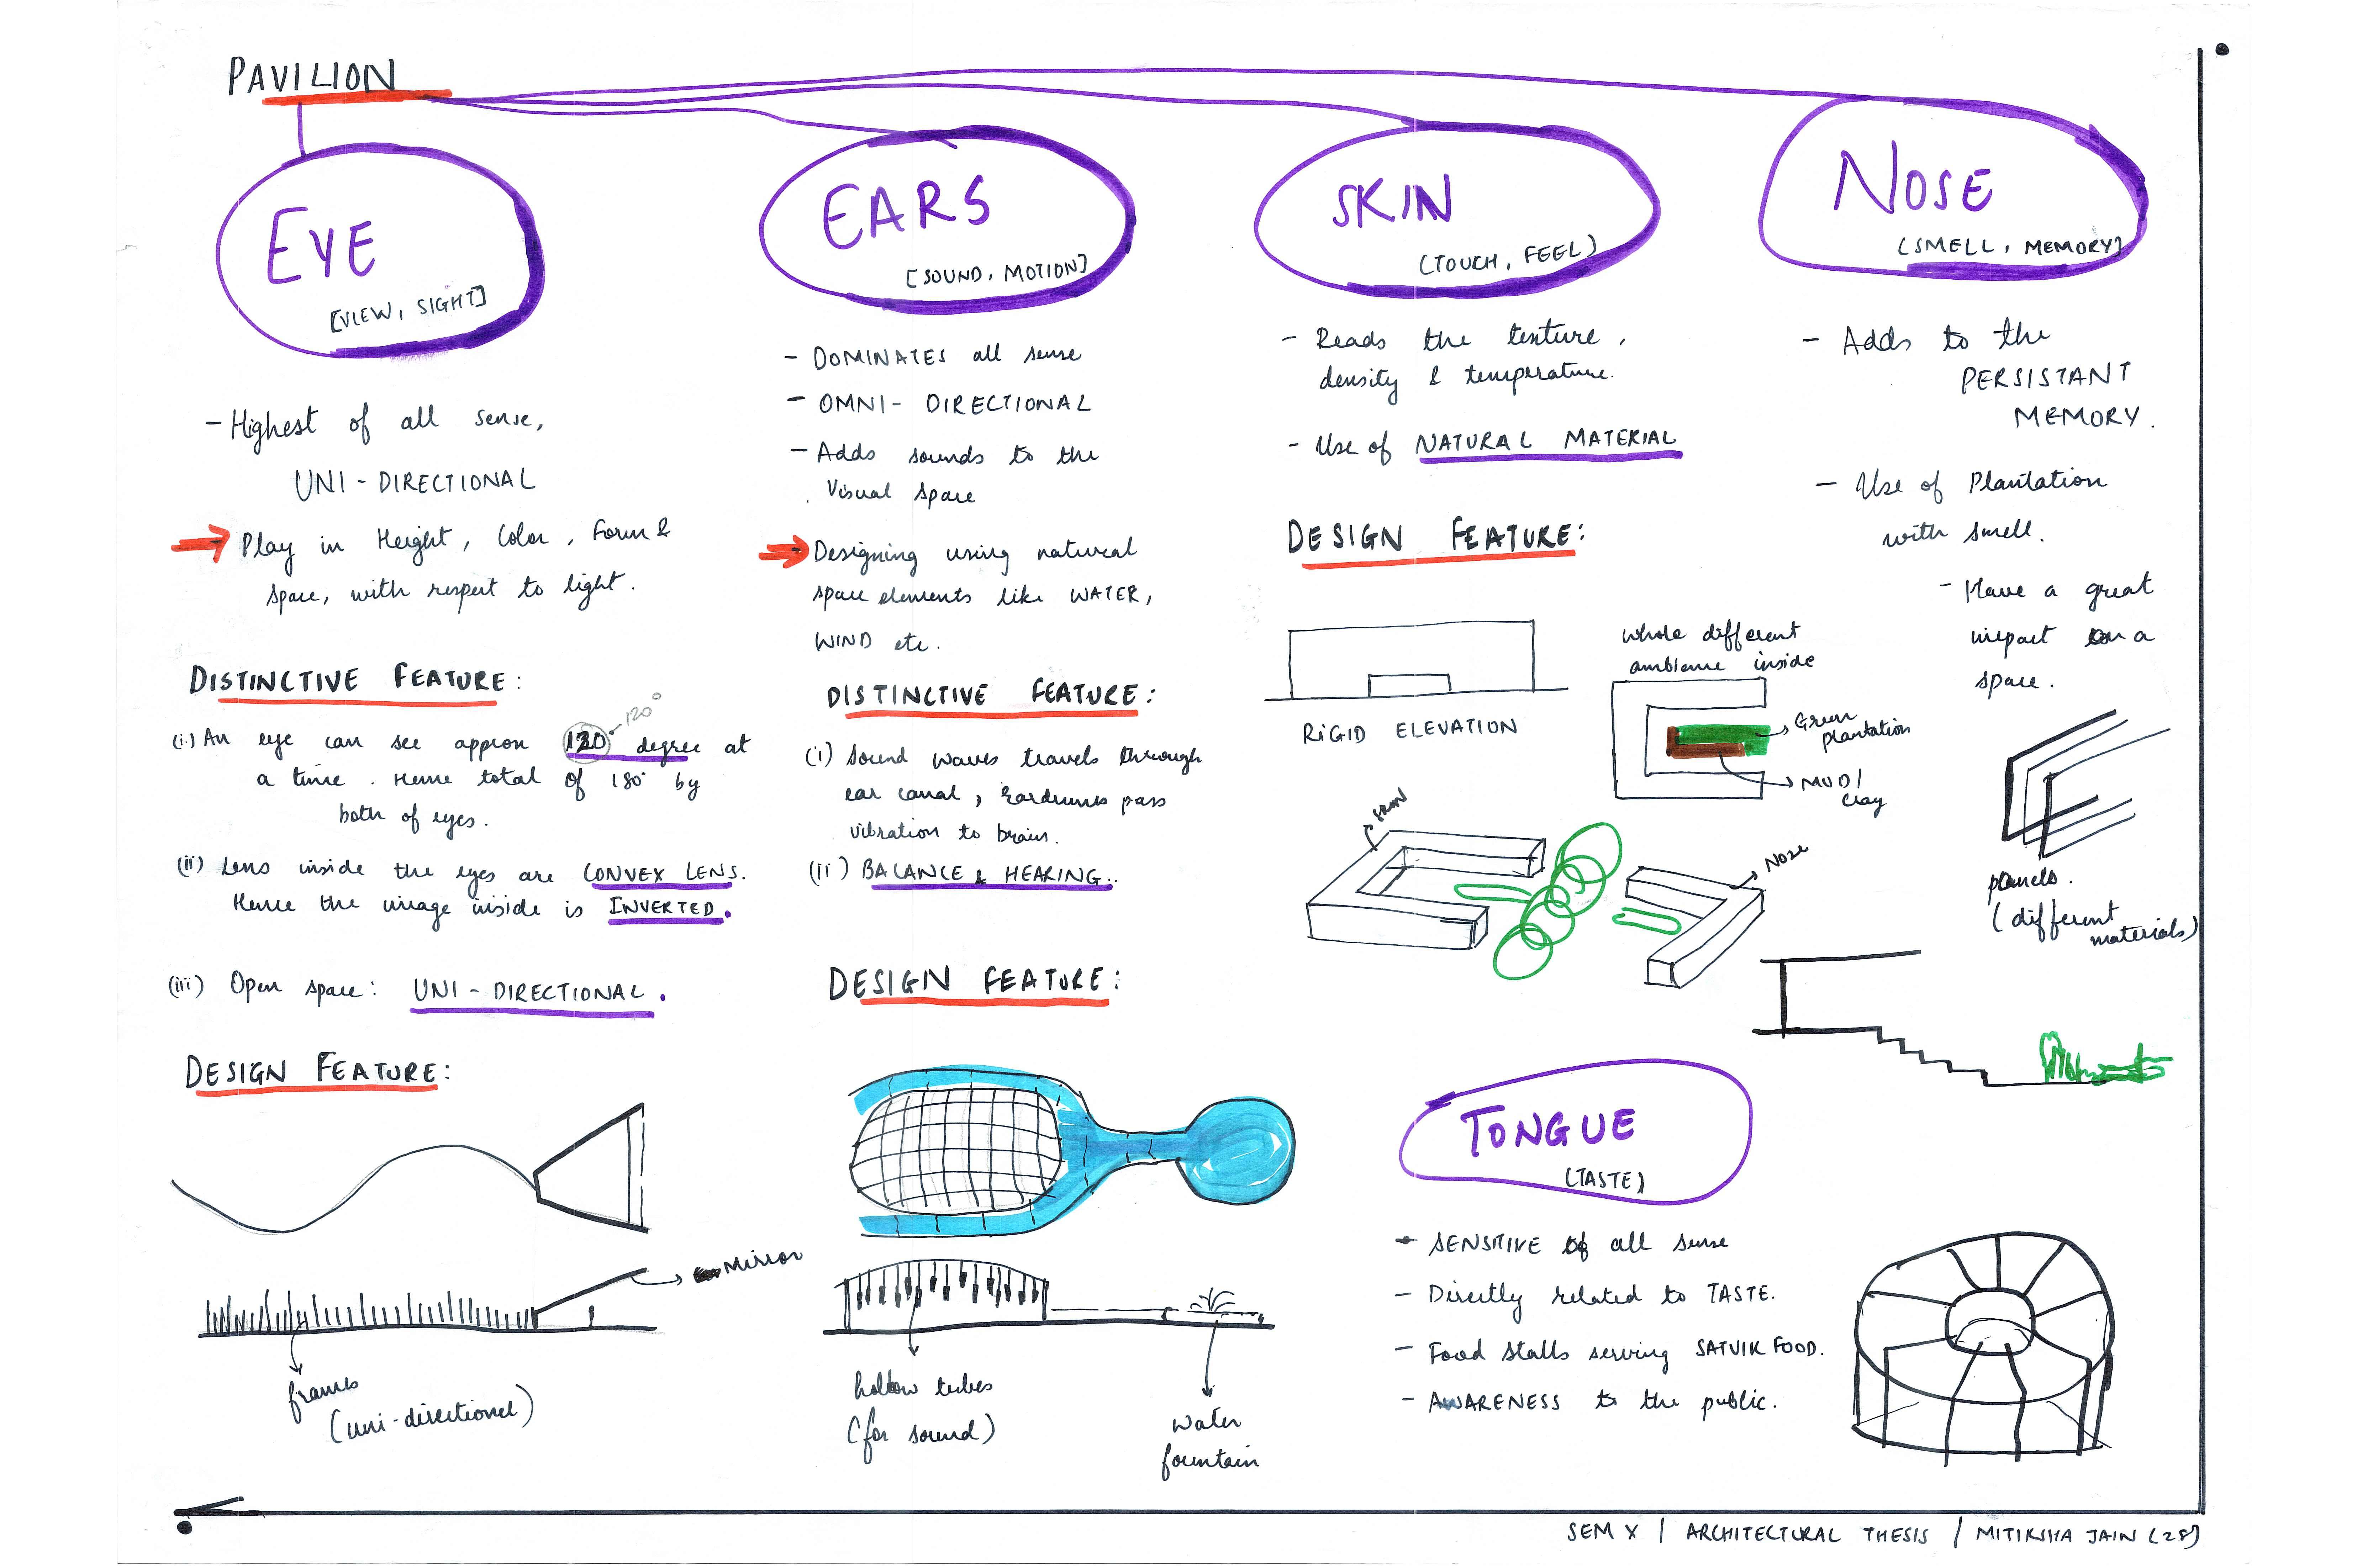 PAVILION
EYE
[VIEW, SIGHT]
- Highest of all sense,
UNI - DIRECTIONAL
Play in Height, Color, Form &
space, with respect to light.
DISTINCTIVE FEATURE:
120°
(i) An eye can see approx 120 degree at
a time. Hence total of 180° by
both of eyes.
(ii) Lens inside the eyes are CONVEX LENS.
Hence the image inside is INVERTED.
(iii) Open space: UNI - DIRECTIONAL.
DESIGN FEATURE:
Mirror
frames
(uni-directional)
EARS
[SOUND, MOTION]
- DOMINATES all sense
- OMNI - DIRECTIONAL
- Adds sounds to the
Visual space
Designing using natural
space elements like WATER,
WIND etc.
DISTINCTIVE FEATURE:
(i) Sound waves travels through
ear canal, Eardrums pass
vibration to brain.
(ii) BALANCE & HEARING..
DESIGN FEATURE:
hollow tubes
(for sound)
water
fountain
SKIN
(TOUCH, FEEL)
- Reads the texture,
density & temperature.
- Use of NATURAL MATERIAL
DESIGN FEATURE:
RIGID ELEVATION
whole different
ambience inside
Green
plantation
MUD/
clay
SKIN
NOSE
NOSE
(SMELL, MEMORY)
- Adds to the
PERSISTANT
MEMORY.
- Use of Plantation
with smell.
- Have a great
impact on a
space.
planels.
(different
materials)
TONGUE
(TASTE)
- SENSITIVE of all sense
- Directly related to TASTE.
- Food stalls serving SATVIK FOOD.
- AWARENESS to the public.
SEM X | ARCHITECTURAL THESIS / MITIKSHA JAIN (28)